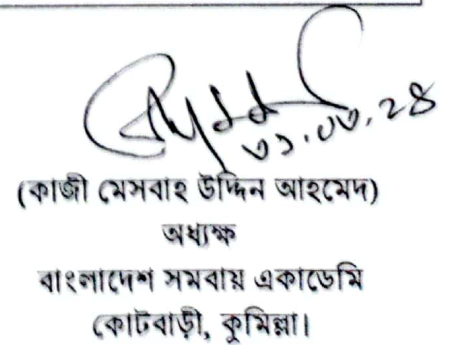 ০১.০৩.২৪
(কাজী মেসবাহ উদ্দিন আহমেদ)
অধ্যক্ষ
বাংলাদেশ সমবায় একাডেমি
কোটবাড়ী, কুমিল্লা।